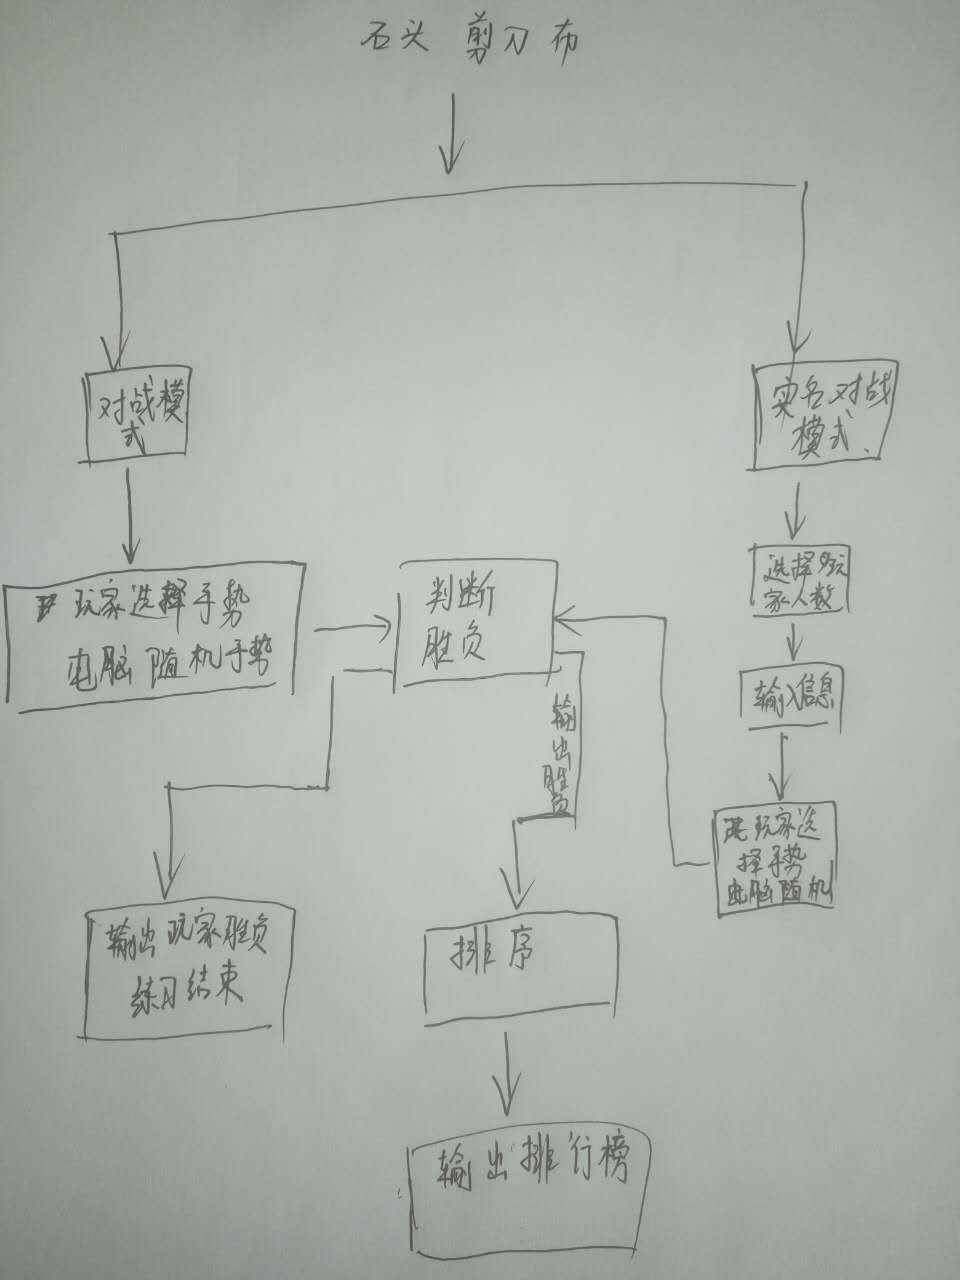 石头 剪刀布
对战模
式
实名对战
模式
选择玩
家人数
玩家选择手势
电脑随机手势
判断
胜负
输入信息
输出
胜负
玩家选
择手势
电脑随机
输出玩家胜负
练习结束
排序
输出排行榜